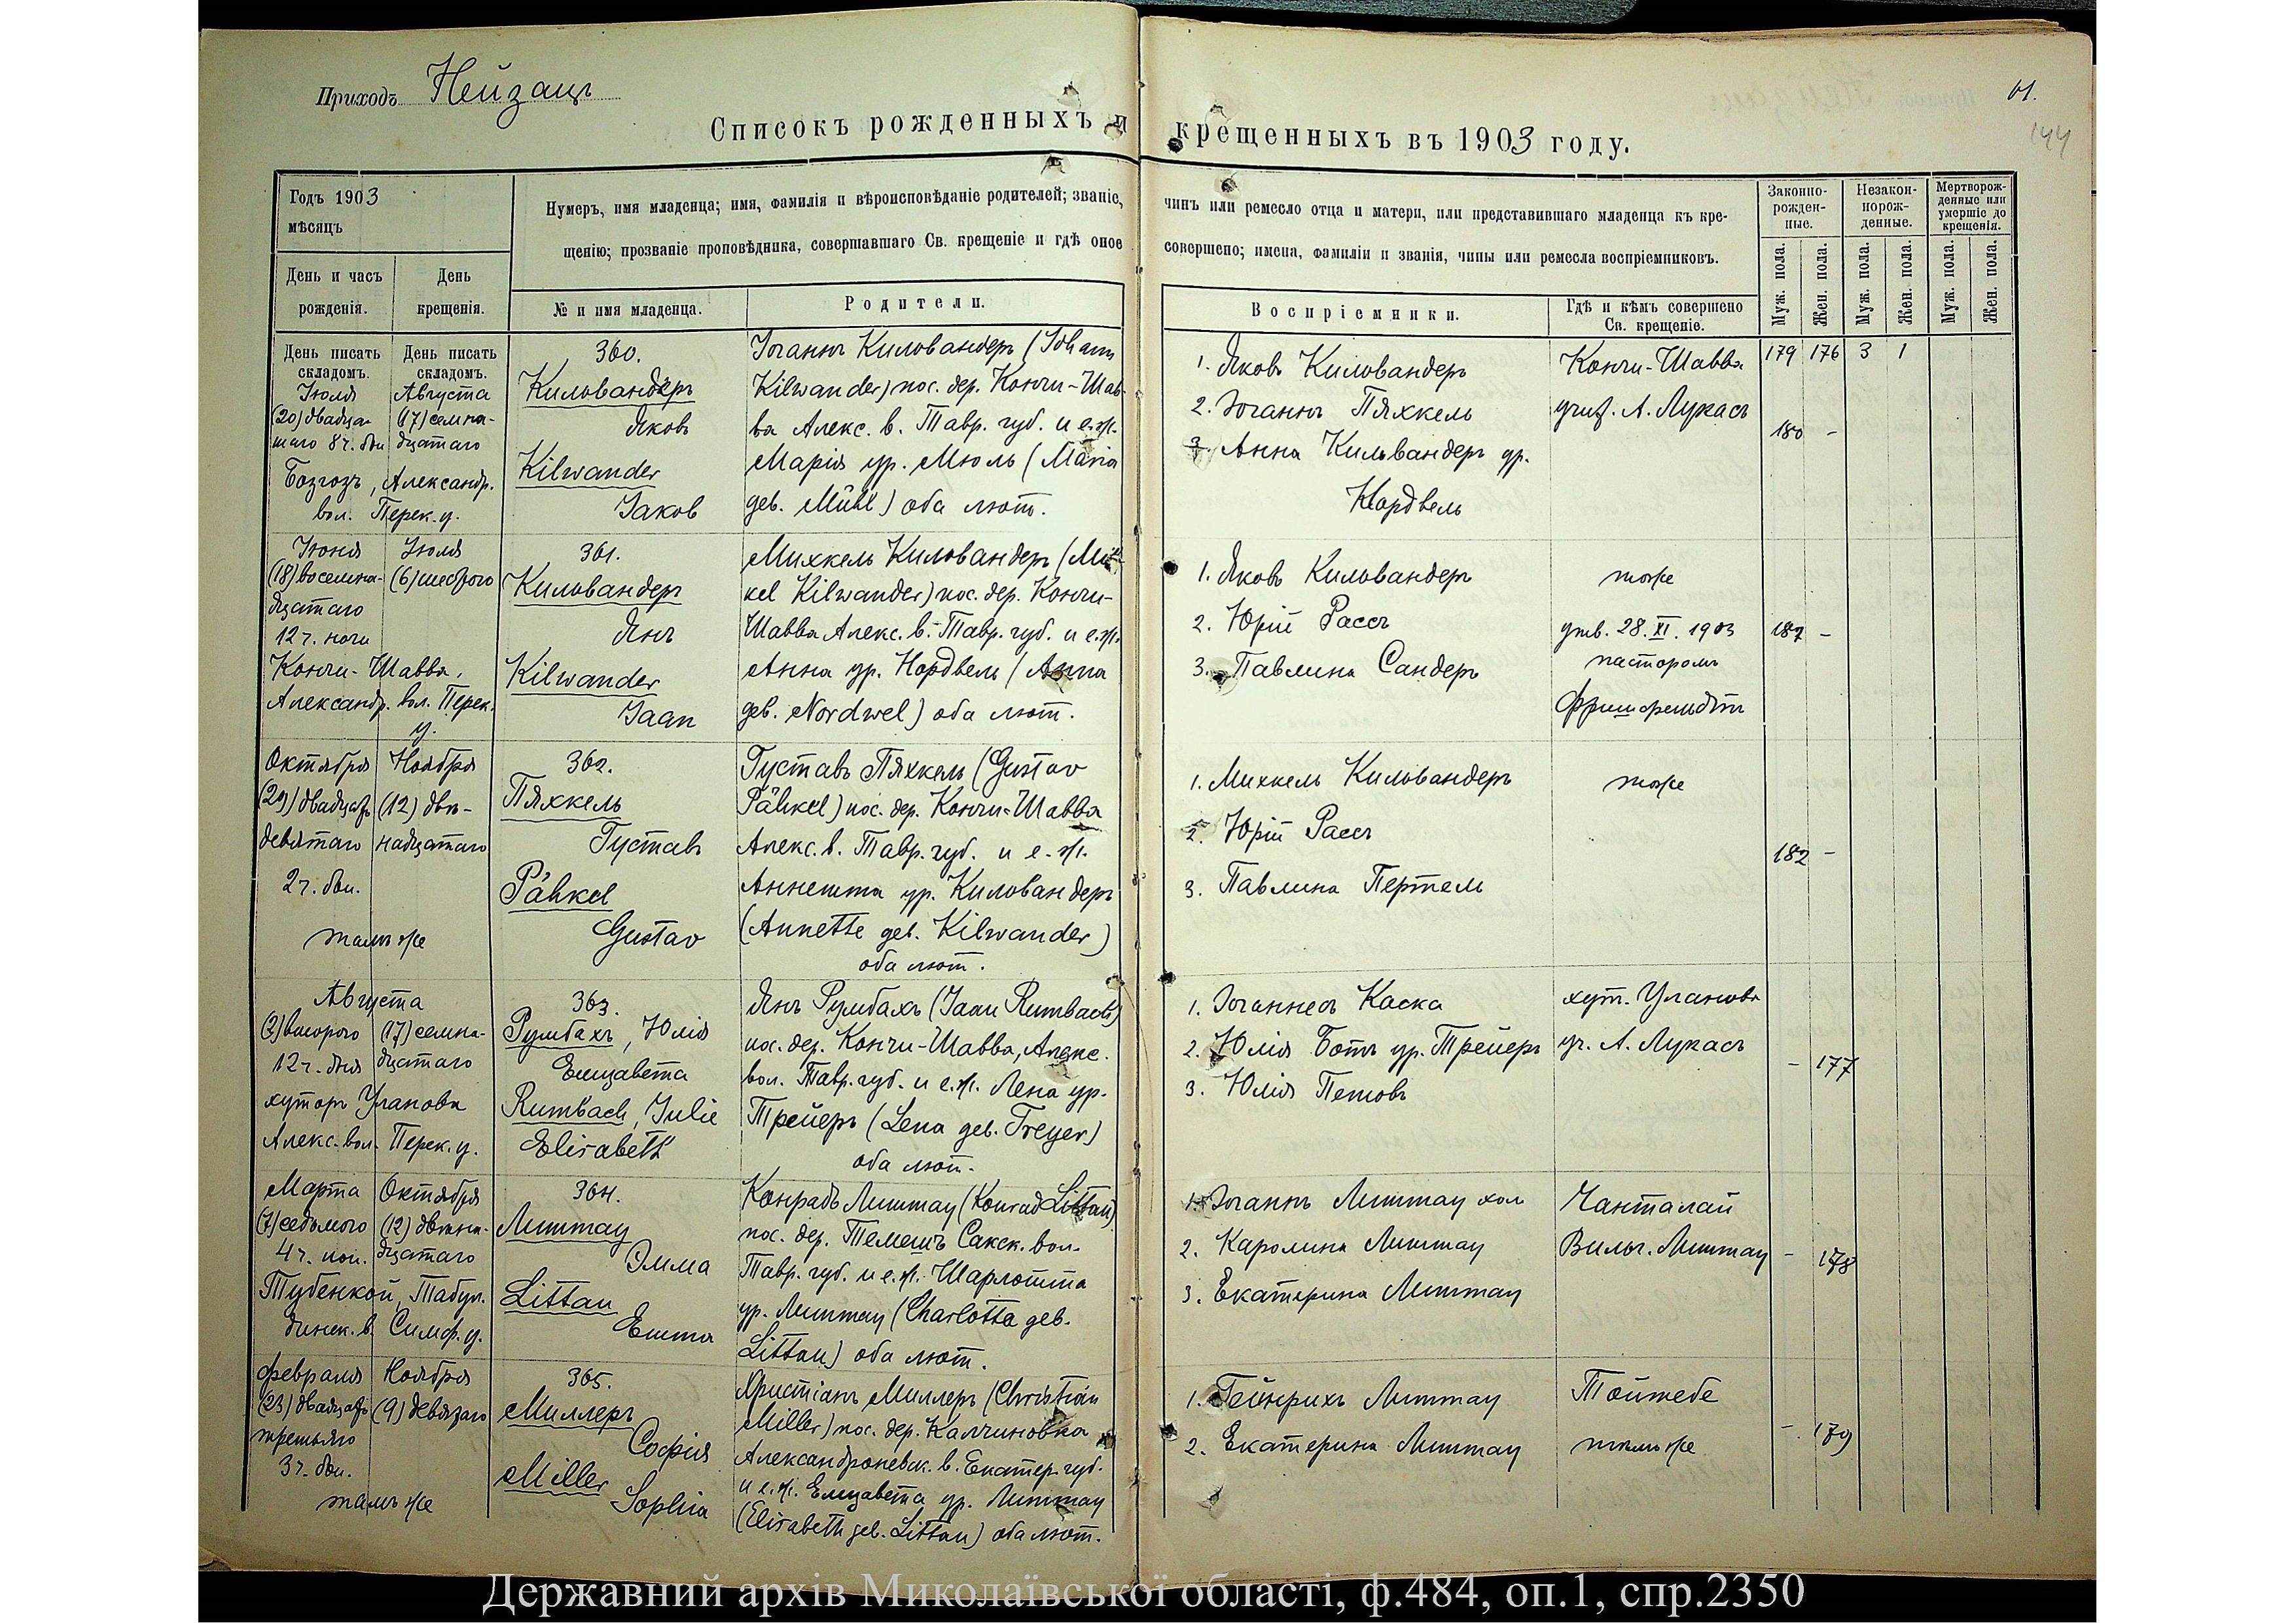 Приходъ Нейзацъ
Списокъ рожденныхъ и крещенныхъ въ 1903 году.
61.
144
Годъ 1903
мѣсяцъ
День и часъ
рожденія.
День
крещенія.
Нумеръ, имя младенца; имя, фамилія и вѣроисповѣданіе родителей; званіе, чинъ или ремесло отца и матери, или представившаго младенца къ кре-
щенію; прозваніе проповѣдника, совершавшаго Св. крещеніе и гдѣ оное совершено; имена, фамиліи и званія, чины или ремесла воспріемниковъ.
№ и имя младенца.
Родители.
Воспріемники.
Гдѣ и кѣмъ совершено
Св. крещеніе.
Законно-
рожден-
ные.
Незакон-
норож-
денные.
Мертворож-
денные или
умершіе до
крещенія.
Муж. пола.
Жен. пола.
Муж. пола.
Жен. пола.
Муж. пола.
Жен. пола.
День писать
складомъ.
День писать
складомъ.
Іюля
(20) двадца-
таго 8 ч. дня
Августа
(17) семна-
дцатаго
Бозгозъ, Александр.
вол. Перек. у.
360.
Кильвандеръ
Яковъ
Kilwander
Jakob
Іоганнъ Кильвандеръ (Johann
Kilwander) пос. дер. Кончи-Шав-
ва Алекс. в. Тавр. губ. и е. ж.
Марія ур. Мюль (Maria
geb. Mühl) оба лют.
1. Яковъ Кильвандеръ
2. Іоганнъ Пяхкель
3. Анна Кильвандеръ ур.
Нордвель
Кончи-Шавва
учит. А. Лукасъ
179 176 3 1
180 -
Іюня
(18) восемна-
дцатаго
12 ч. ночи
Іюля
(6) шестого
Кончи-Шавва,
Александр. вол. Перек.
у.
361.
Кильвандеръ
Янъ
Kilwander
Jaan
Михкель Кильвандеръ (Mih-
kel Kilwander) пос. дер. Кончи-
Шавва Алекс. в. Тавр. губ. и е. ж.
Анна ур. Нордвель (Anna
geb. Nordwel) оба лют.
1. Яковъ Кильвандеръ
2. Юрій Рассъ
3. Павлина Сандеръ
тоже
утв. 28. XI. 1903
пасторомъ
181 -
Октября
(29) двадцать
девятаго
2 ч. дня.
Ноября
(12) двѣ-
надцатаго
тамъ же
362.
Пяхкель
Густавъ
Pähkel
Gustav
Густавъ Пяхкель (Gustav
Pähkel) пос. дер. Кончи-Шавва
Алекс. в. Тавр. губ. и е. ж.
Аннетта ур. Кильвандеръ
(Annette geb. Kilwander)
оба лют.
1. Михкель Кильвандеръ
2. Юрій Рассъ
3. Павлина Пертель
тоже
182 -
Августа
(2) второго
12 ч. дня
(17) семна-
дцатаго
хуторъ Уланова
Алекс. вол. Перек. у.
363.
Румбахъ, Юлія
Елизавета
Rumbach, Julie
Elisabeth
Янъ Румбахъ (Jaan Rumbach)
пос. дер. Кончи-Шавва, Алекс.
вол. Тавр. губ. и е. ж. Лена ур.
Трейеръ (Lena geb. Treyer)
оба лют.
1. Іоганнесъ Каска
2. Юлія Ботъ ур. Трейеръ
3. Юлія Петовъ
хут. Уланова
уч. А. Лукасъ
- 177
Марта
(7) седьмого
4 ч. поп.
Октября
(12) двѣна-
дцатаго
Тубенкой, Табул-
динск. в. Симф. у.
364.
Литтау
Эмма
Littau
Emma
Конрадъ Литтау (Konrad Littau)
пос. дер. Темешъ Сакск. вол.
Тавр. губ. и е. ж. Шарлотта
ур. Литтау (Charlotta geb.
Littau) оба лют.
1. Іоганнъ Литтау хол
2. Каролина Литтау
3. Екатерина Литтау
Чанталай
Вильг. Литтау
- 178
Февраля
(23) двадцать
третьяго
3 ч. дня.
Ноября
(9) девятаго
тамъ же
365.
Миллеръ
Софія
Miller
Sophia
Христіанъ Миллеръ (Christian
Miller) пос. дер. Калчиновка
Александроневск. в. Екатер. губ.
и е. ж. Елизавета ур. Литтау
(Elisabeth geb. Littau) оба лют.
1. Гейнрихъ Литтау
2. Екатерина Литтау
Тойтебе
тамъ же
- 179
Державний архів Миколаївської області, ф.484, оп.1, спр.2350